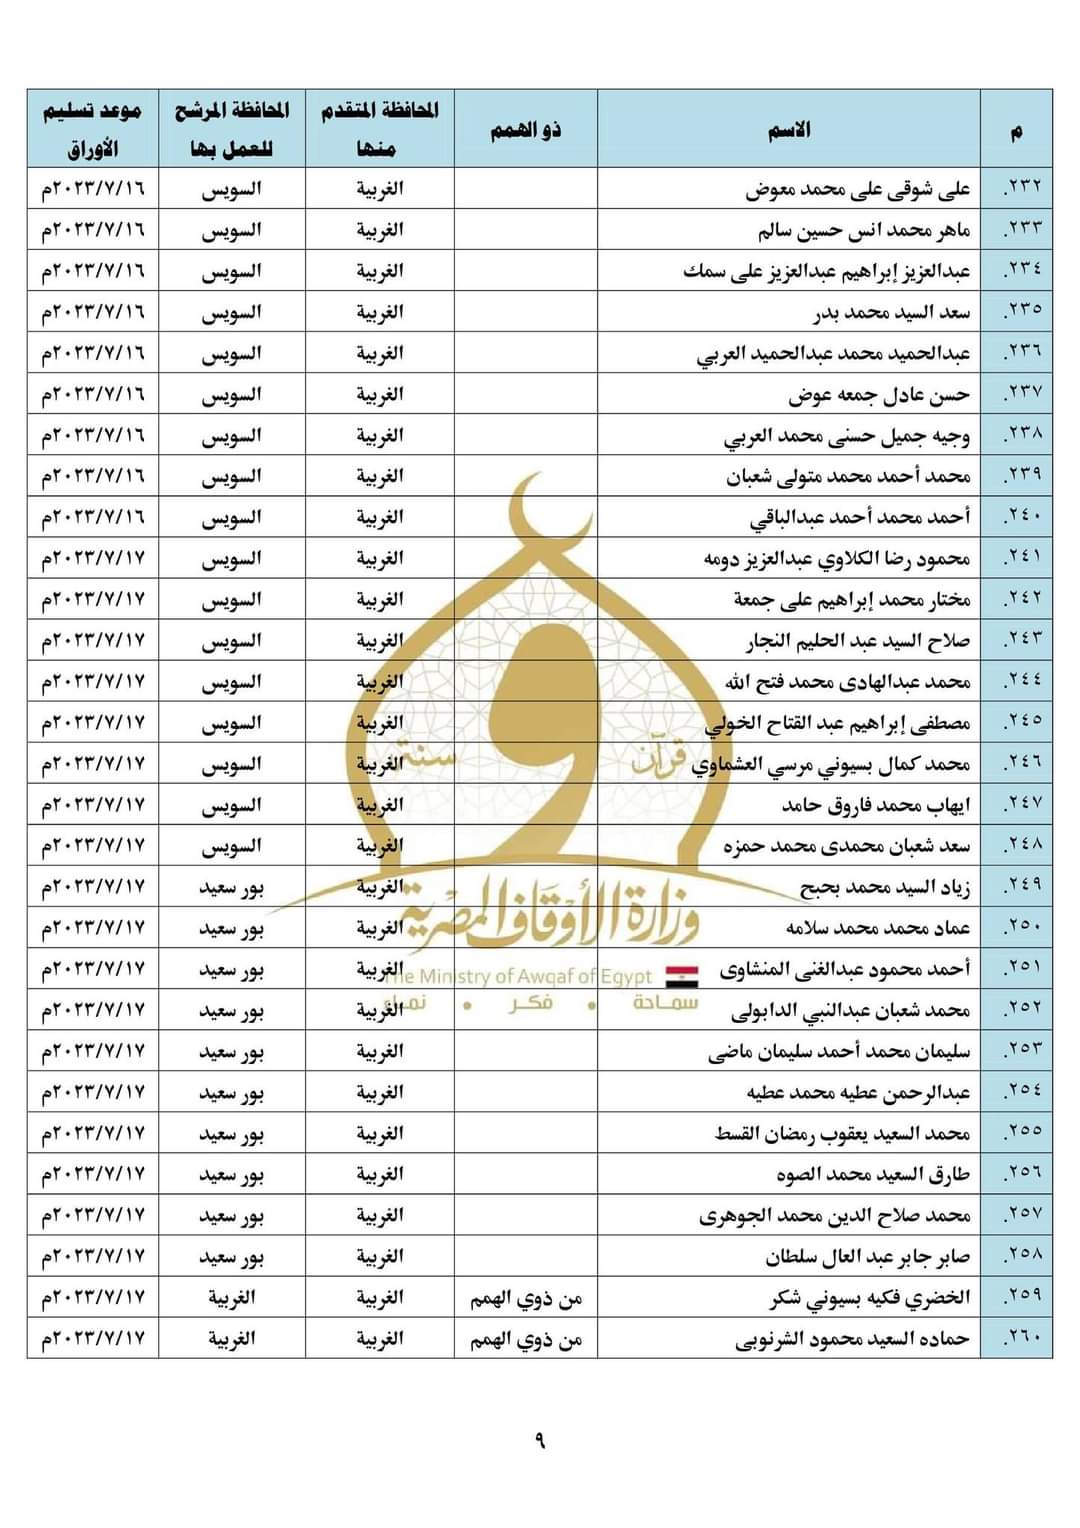 م الاسم ذو الهمم المحافظة المتقدم منها المحافظة المرشح للعمل بها موعد تسليم الأوراق
٢٣٢. على شوقى على محمد معوض الغربية السويس ٢٠٢٣/٧/١٦م
٢٣٣. ماهر محمد انس حسين سالم الغربية السويس ٢٠٢٣/٧/١٦م
٢٣٤. عبدالعزيز إبراهيم عبدالعزيز على سمك الغربية السويس ٢٠٢٣/٧/١٦م
٢٣٥. سعد السيد محمد بدر الغربية السويس ٢٠٢٣/٧/١٦م
٢٣٦. عبدالحميد محمد عبدالحميد العربي الغربية السويس ٢٠٢٣/٧/١٦م
٢٣٧. حسن عادل جمعه عوض الغربية السويس ٢٠٢٣/٧/١٦م
٢٣٨. وجيه جميل حسنى محمد العربي الغربية السويس ٢٠٢٣/٧/١٦م
٢٣٩. محمد أحمد محمد متولى شعبان الغربية السويس ٢٠٢٣/٧/١٦م
٢٤٠. أحمد محمد أحمد عبدالباقي الغربية السويس ٢٠٢٣/٧/١٦م
٢٤١. محمود رضا الكلاوي عبدالعزيز دومه الغربية السويس ٢٠٢٣/٧/١٧م
٢٤٢. مختار محمد إبراهيم على جمعة الغربية السويس ٢٠٢٣/٧/١٧م
٢٤٣. صلاح السيد عبد الحليم النجار الغربية السويس ٢٠٢٣/٧/١٧م
٢٤٤. محمد عبدالهادى محمد فتح الله الغربية السويس ٢٠٢٣/٧/١٧م
٢٤٥. مصطفى إبراهيم عبد القتاح الخولي الغربية السويس ٢٠٢٣/٧/١٧م
٢٤٦. محمد كمال بسيوني مرسي العشماوي الغربية السويس ٢٠٢٣/٧/١٧م
قرآن سنة
٢٤٧. ايهاب محمد فاروق حامد الغربية السويس ٢٠٢٣/٧/١٧م
٢٤٨. سعد شعبان محمدى محمد حمزه الغربية السويس ٢٠٢٣/٧/١٧م
٢٤٩. زياد السيد محمد بحبح الغربية بور سعيد ٢٠٢٣/٧/١٧م
وزارة الأوقاف المصرية
٢٥٠. عماد محمد محمد سلامه الغربية بور سعيد ٢٠٢٣/٧/١٧م
٢٥١. أحمد محمود عبدالغنى المنشاوى الغربية بور سعيد ٢٠٢٣/٧/١٧م
The Ministry of Awqaf of Egypt
سماحة • فكر • نماء
٢٥٢. محمد شعبان عبدالنبي الدابولى الغربية بور سعيد ٢٠٢٣/٧/١٧م
٢٥٣. سليمان محمد أحمد سليمان ماضى الغربية بور سعيد ٢٠٢٣/٧/١٧م
٢٥٤. عبدالرحمن عطيه محمد عطيه الغربية بور سعيد ٢٠٢٣/٧/١٧م
٢٥٥. محمد السعيد يعقوب رمضان القسط الغربية بور سعيد ٢٠٢٣/٧/١٧م
٢٥٦. طارق السعيد محمد الصوه الغربية بور سعيد ٢٠٢٣/٧/١٧م
٢٥٧. محمد صلاح الدين محمد الجوهرى الغربية بور سعيد ٢٠٢٣/٧/١٧م
٢٥٨. صابر جابر عبد العال سلطان الغربية بور سعيد ٢٠٢٣/٧/١٧م
٢٥٩. الخضري فكيه بسيوني شكر من ذوي الهمم الغربية الغربية ٢٠٢٣/٧/١٧م
٢٦٠. حماده السعيد محمود الشرنوبى من ذوي الهمم الغربية الغربية ٢٠٢٣/٧/١٧م
٩